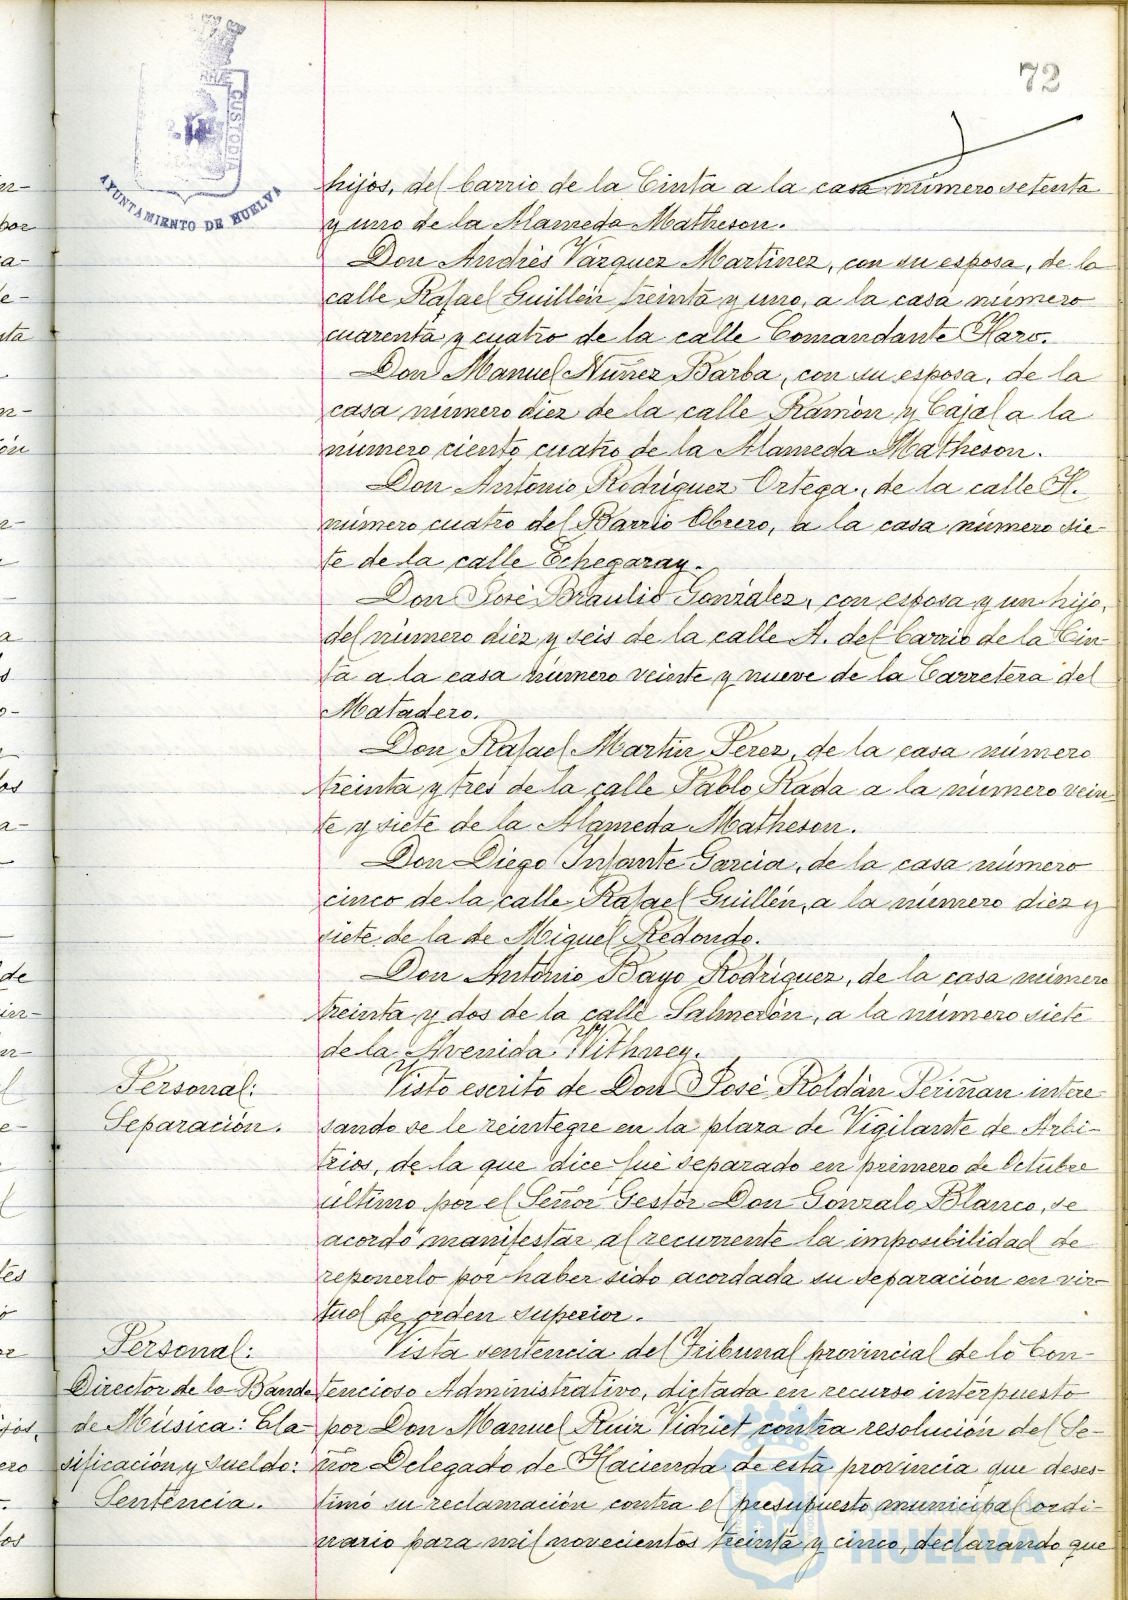 72
RHÆ CUSTODIA
AYUNTAMIENTO DE HUELVA
hijos, del barrio de la Cinta a la casa número setenta
y uno de la Alameda Matheson.
Don Andrés Vázquez Martínez, con su esposa, de la
calle Rafael Guillén treinta y uno, a la casa número
cuarenta y cuatro de la calle Comandante Haro.
Don Manuel Núñez Barba, con su esposa, de la
casa número diez de la calle Ramón y Cajal a la
número ciento cuatro de la Alameda Matheson.
Don Antonio Rodríguez Ortega, de la calle H.
número cuatro del Barrio Obrero, a la casa número sie-
te de la calle Echegaray.
Don José Braulio González, con esposa y un hijo,
del número diez y seis de la calle A. del barrio de la Cin-
ta a la casa número veinte y nueve de la Carretera del
Matadero.
Don Rafael Martín Pérez, de la casa número
treinta y tres de la calle Pablo Rada a la número vein-
te y siete de la Alameda Matheson.
Don Diego Infante García, de la casa número
cinco de la calle Rafael Guillén, a la número diez y
siete de la de Miguel Redondo.
Don Antonio Bayo Rodríguez, de la casa número
treinta y dos de la calle Salmerón, a la número siete
de la Avenida Withney.
Personal:
Separación.
Visto escrito de Don José Roldán Periñan intere-
sando se le reintegre en la plaza de Vigilante de Arbi-
trios, de la que dice fué separado en primero de Octubre
último por el Señor Gestor Don Gonzalo Blanco, se
acordó manifestar al recurrente la imposibilidad de
reponerlo por haber sido acordada su separación en vir-
tud de orden superior.
Personal:
Director de la Banda
de Música: Cla-
sificación y sueldo:
Sentencia.
Vista sentencia del Tribunal provincial de lo Con-
tencioso Administrativo, dictada en recurso interpuesto
por Don Manuel Ruiz Vidriet contra resolución del Se-
ñor Delegado de Hacienda de esta provincia que deses-
timó su reclamación contra el presupuesto municipal ordi-
nario para mil novecientos treinta y cinco, declarando que
HUELVA